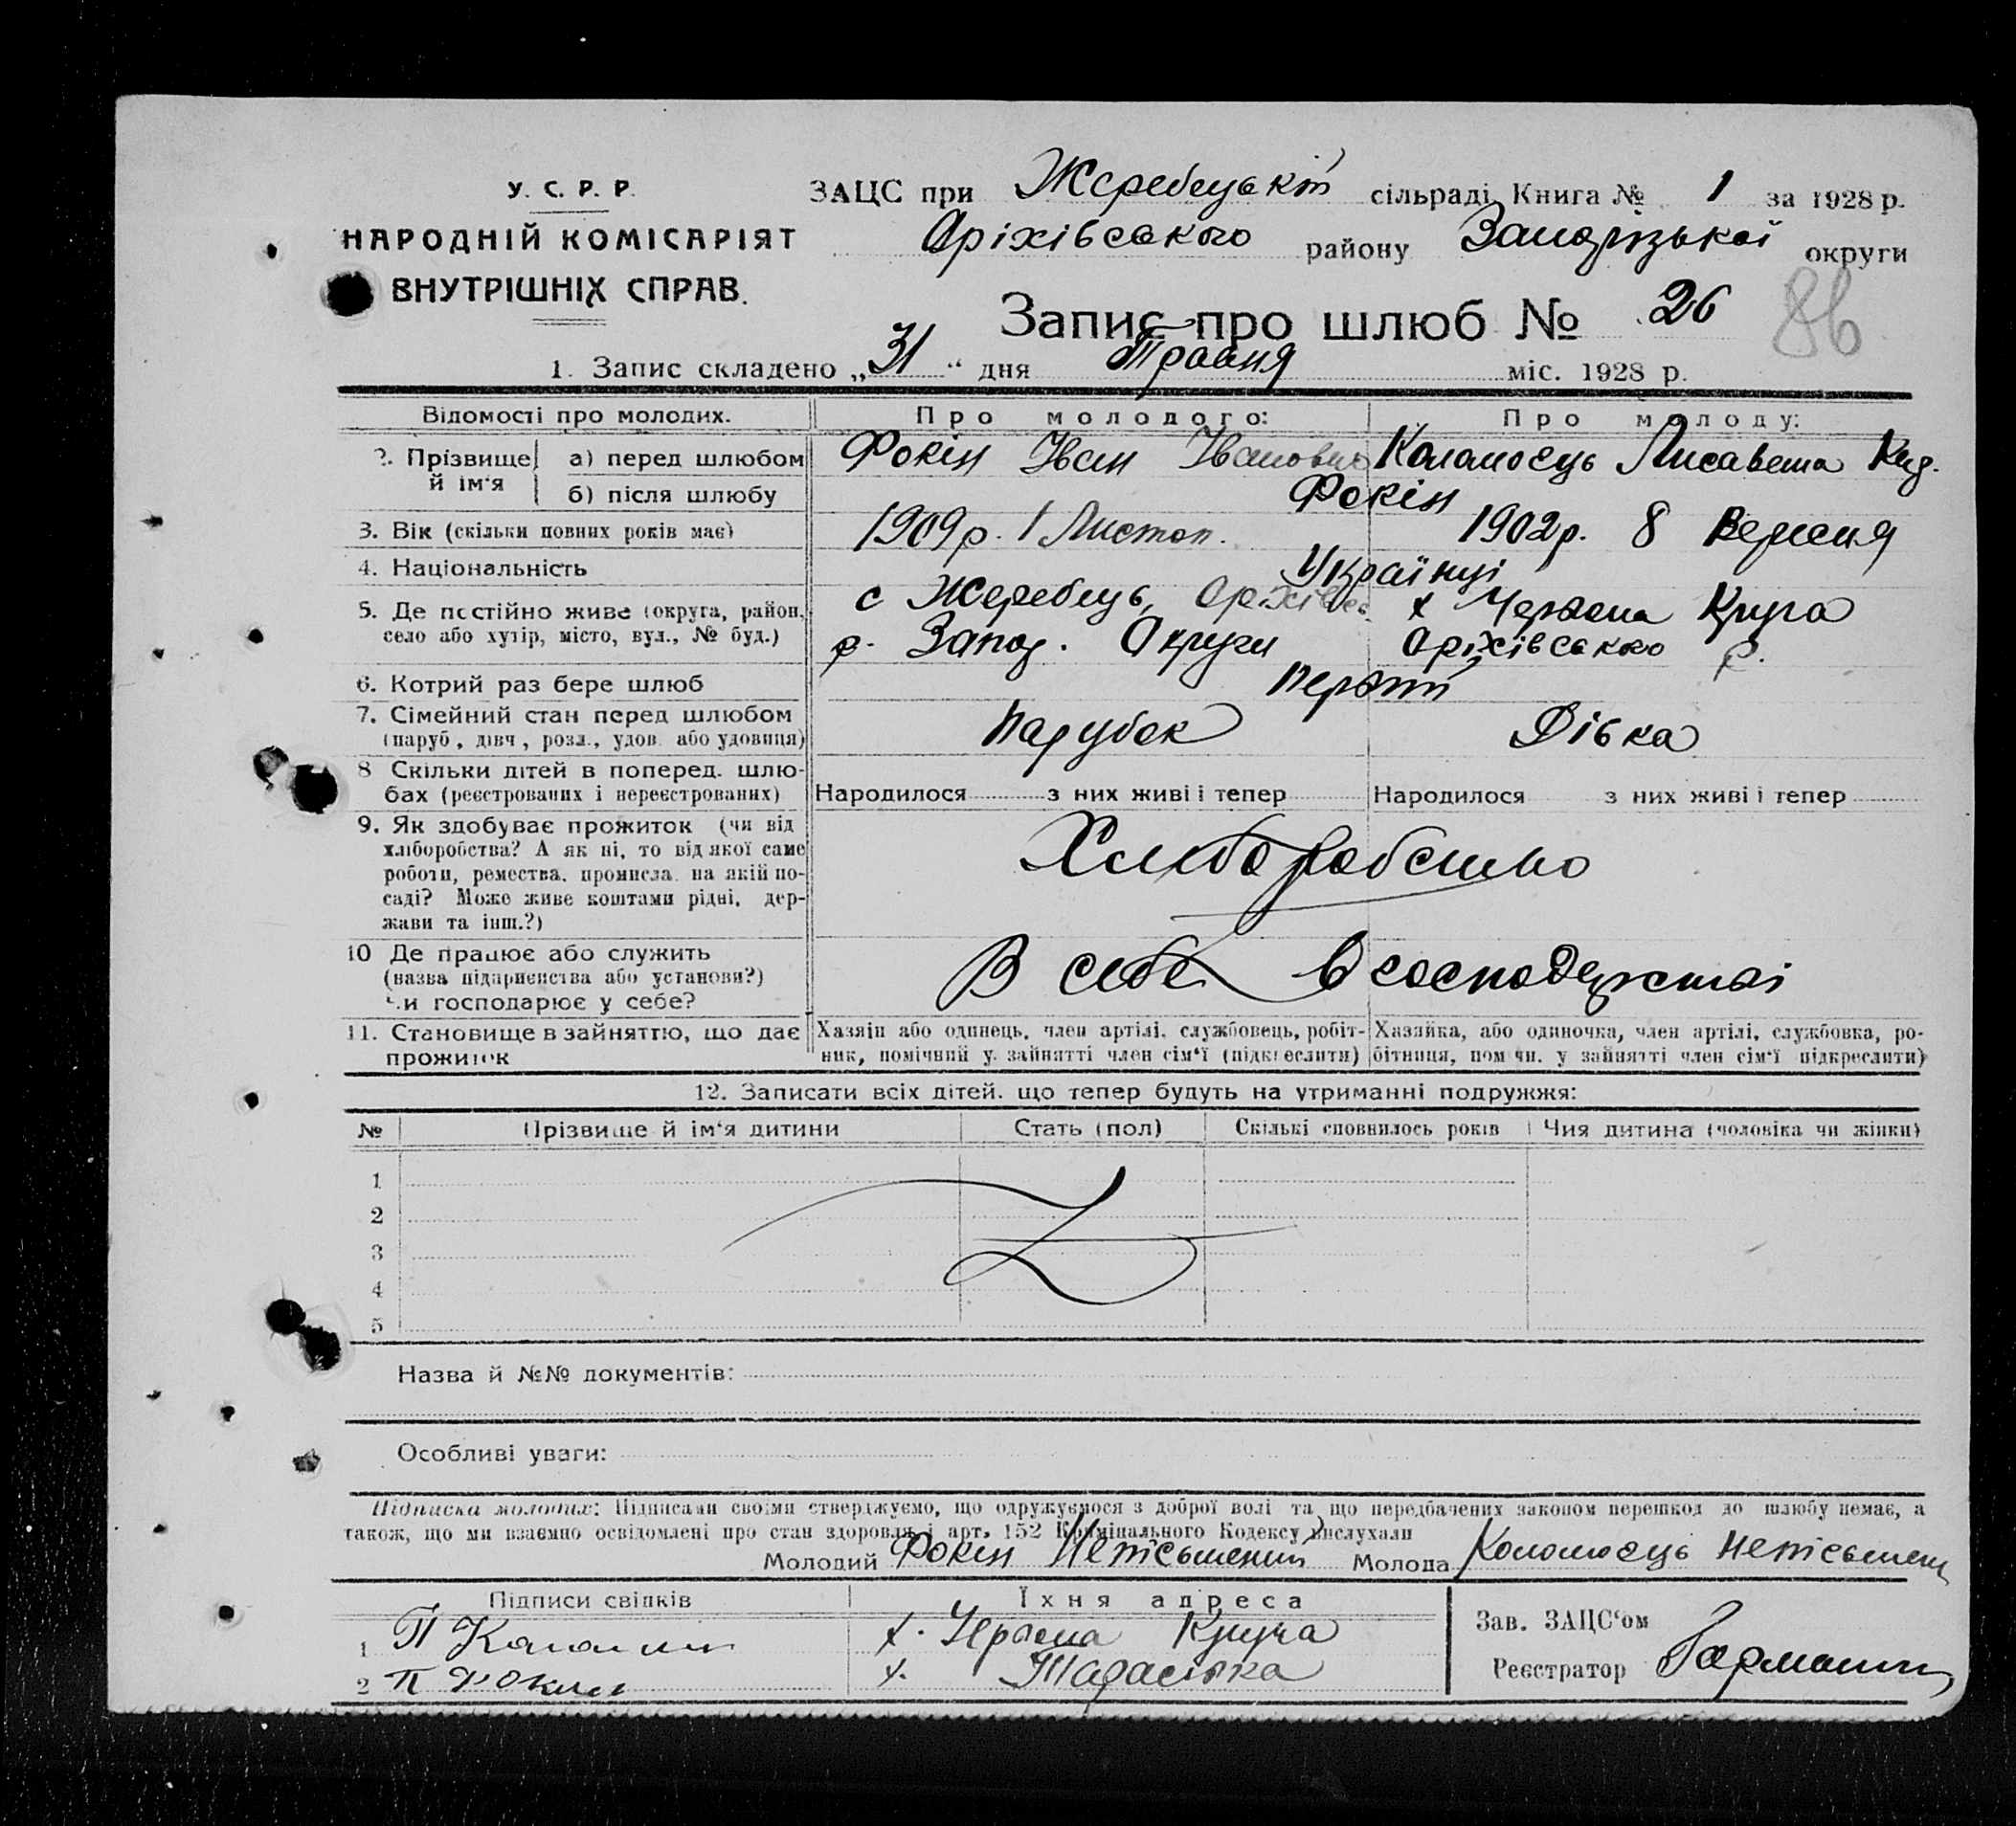 У. С. Р. Р.
НАРОДНІЙ КОМІСАРІЯТ
ВНУТРІШНІХ СПРАВ.
ЗАЦС при Жеребецькій сільраді Книга № 1 за 1928 р.
Оріхівського району Запорізької округи
Запис про шлюб № 26
86
1. Запис складено „31“ дня Травня міс. 1928 р.
Відомості про молодих. Про молодого: Про молоду:
2. Прізвище й ім'я а) перед шлюбом Фокін Іван Іванович Коломоєць Лисавета
б) після шлюбу Фокін
3. Вік (скільки повних років має) 1909 р. 1 Листоп. 1902 р. 8 Вересня
4. Національність Українці
5. Де постійно живе (округа, район, с Жеребець, Оріхівсь х Червона Круча
село або хутір, місто, вул., № буд.) р. Запор. Округи Оріхівського р.
6. Котрий раз бере шлюб перший
7. Сімейний стан перед шлюбом Парубок Дівка
(паруб., дівч., розл., удов. або удовиця)
8 Скільки дітей в поперед. шлю-
бах (реєстрованих і нереєстрованих) Народилося з них живі і тепер Народилося з них живі і тепер
9. Як здобуває прожиток (чи від
хліборобства? А як ні, то від якої саме
роботи, ремества, промисла, на якій по-
саді? Може живе коштами рідні, дер-
жави та інш.?)
Хліборобство
10 Де працює або служить
(назва підприємства або установи?)
чи господарює у себе?
В себе в господарстві
11. Становище в зайняттю, що дає Хазяїн або одинець, член артілі, службовець, робіт- Хазяйка, або одиночка, член артілі, службовка, ро-
прожиток ник, помічний у зайнятті член сім'ї (підкреслити) бітниця, помічн. у зайнятті член сім'ї підкреслити)
12. Записати всіх дітей, що тепер будуть на утриманні подружжя:
№ Прізвище й ім'я дитини Стать (пол) Скількі сповнилось років Чия дитина (чоловіка чи жінки)
1
2
3
4
5
Назва й №№ документів:
Особливі уваги:
Підписка молодих: Підписами своїми стверджуємо, що одружуємося з доброї волі та що передбачених законом перешкод до шлюбу немає, а
також, що ми взаємно освідомлені про стан здоровля і арт. 152 Кримінального Кодексу вислухали
Молодий Фокін Неписьмений Молода Коломоєць Неписьмен
Підписи свідків Їхня адреса
1 П х. Червона Круча
2 П Фокин х.
Зав. ЗАЦС'ом
Реєстратор